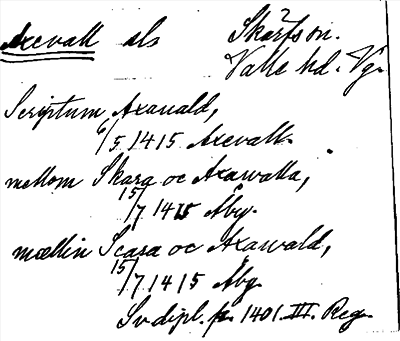 Axevall sls Skarfs sn.
Valle hd. Vg.
Scriptum Axauald,
6/5 1415 Axevall.
mellom Skara oc Axawalla,
15/7 1415 Åby.
mællin Scara oc Axawald,
15/7 1415 Åby.
Sv dipl. fr. 1401. III. Reg.